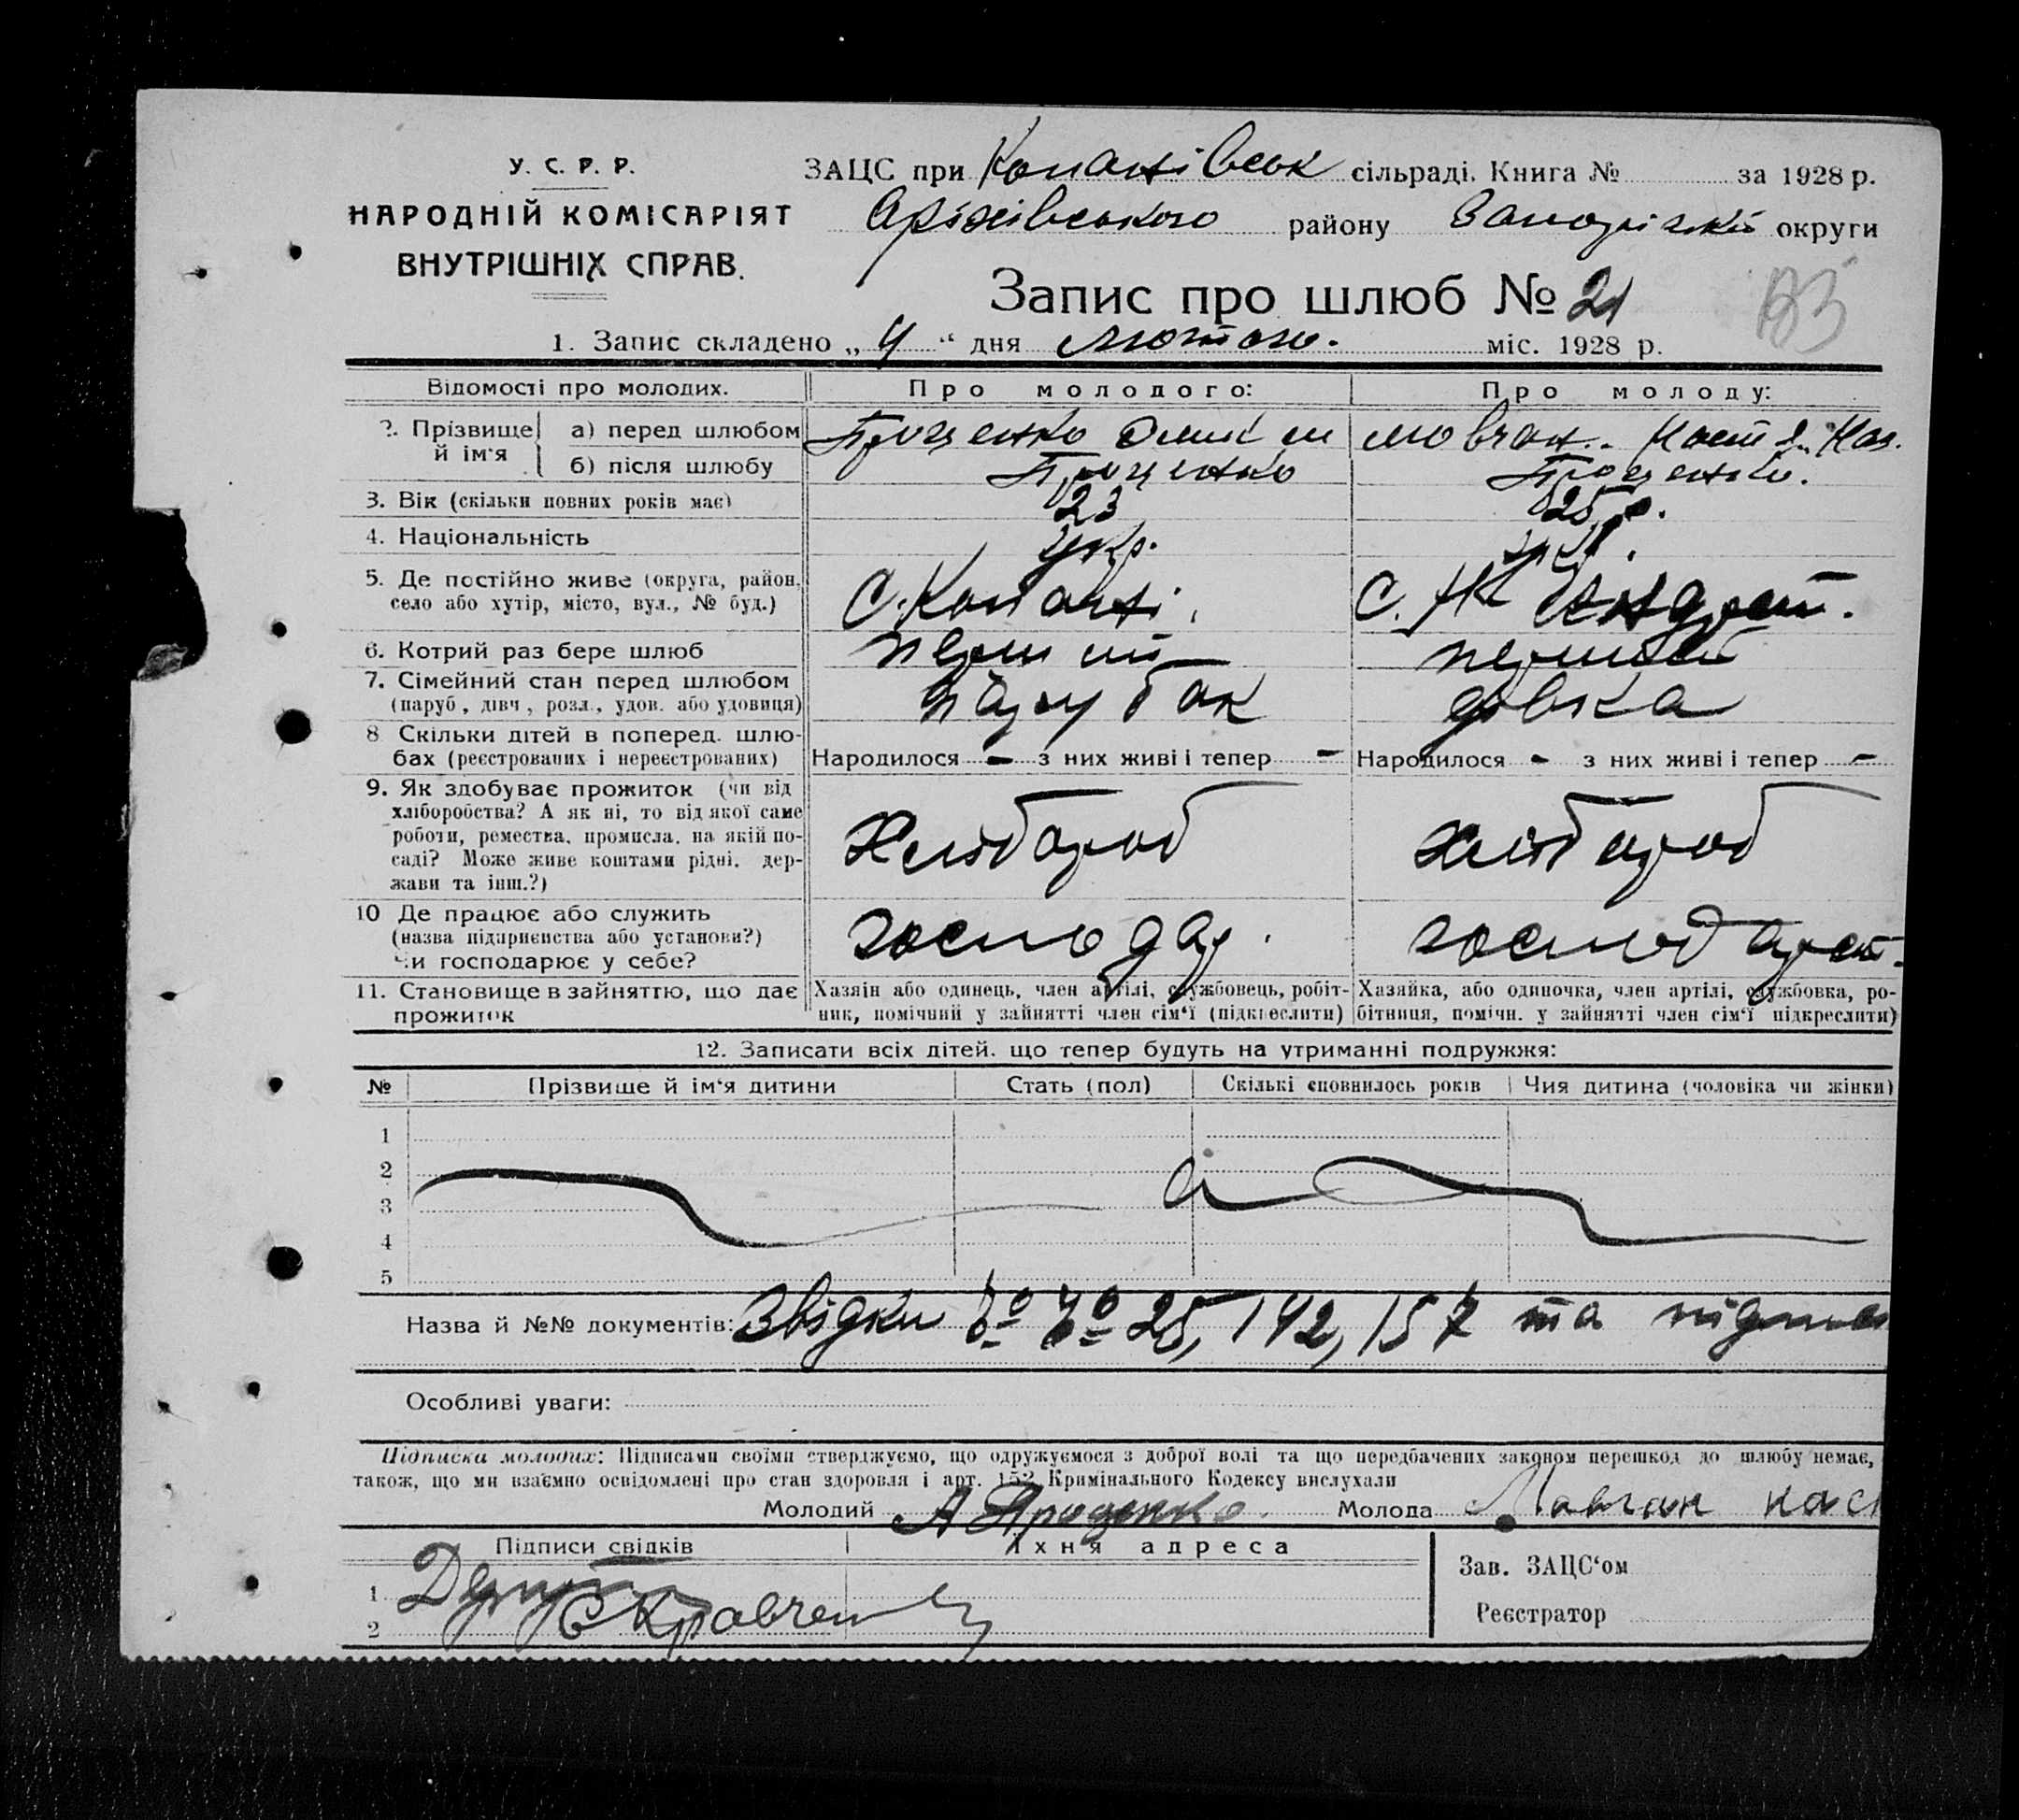 У. С. Р. Р.
НАРОДНІЙ КОМІСАРІЯТ
ВНУТРІШНІХ СПРАВ.
ЗАЦС при Копанівськ сільраді. Книга № за 1928 р.
Оріхівського району Запоріжської округи
Запис про шлюб № 21
1. Запис складено „ 4 “ дня лютого. міс. 1928 р.
Відомості про молодих. Про молодого: Про молоду:
2. Прізвище й ім‘я а) перед шлюбом Проценко Мовчан.
б) після шлюбу Проценко Проценко.
3. Вік (скільки повних років має) 23 25 р.
4. Національність укр. укр.
5. Де постійно живе (округа, район, село або хутір, місто, вул., № буд.) С. Копані. С.
6. Котрий раз бере шлюб перший перший
7. Сімейний стан перед шлюбом (паруб, дівч, розл., удов. або удовиця) парубак дівка
8 Скільки дітей в поперед. шлюбах (реєстрованих і нереєстрованих) Народилося - з них живі і тепер - Народилося - з них живі і тепер -
9. Як здобуває прожиток (чи від хліборобства? А як ні, то від якої саме роботи, ремества, промисла, на якій посаді? Може живе коштами рідні, держави та інш.?) Хлібороб хлібороб
10 Де працює або служить (назва підприєнства або установи?) Чи господарює у себе? господар. господарст.
11. Становище в зайняттю, що дає прожиток
Хазяін або одинець, член артілі, службовець, робітник, помічний у зайнятті член сім‘ї (підкреслити)
Хазяйка, або одиночка, член артілі, службовка, робітниця, помічн. у зайнятті член сім‘ї підкреслити)
12. Записати всіх дітей, що тепер будуть на утриманні подружжя:
№ Прізвище й ім‘я дитини Стать (пол) Скількі сповнилось років Чия дитина (чоловіка чи жінки)
1
2
3
4
5
Назва й №№ документів: Звідки № № 25, 142, 157 та
Особливі уваги:
Підписка молодих: Підписами своїми стверджуємо, що одружуємося з доброї волі та що передбачених законом перешкод до шлюбу немає,
також, що ми взаємно освідомлені про стан здоровля і арт. 152 Кримінального Кодексу вислухали
Молодий А Проценко. Молода Мавчан
Підписи свідків Їхня адреса
1
2 Кравченко
Зав. ЗАЦС‘ом
Реєстратор